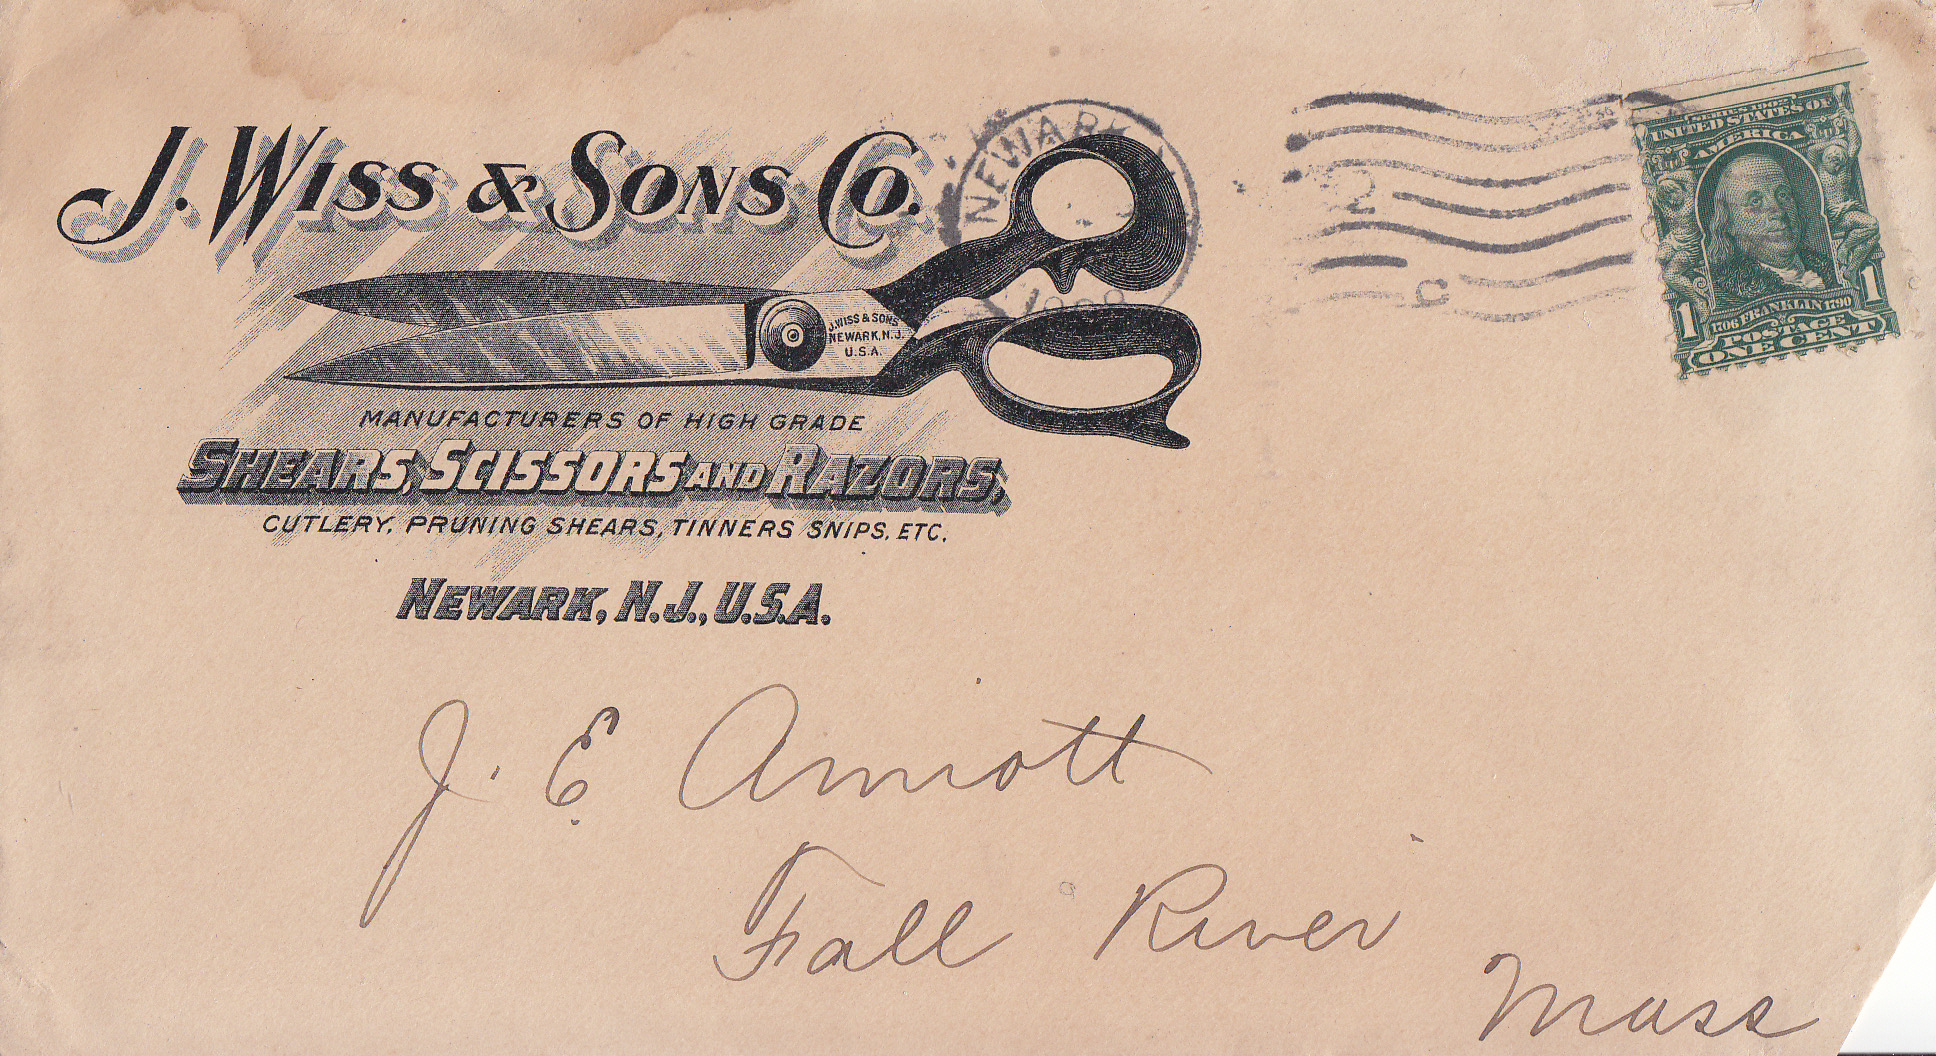 J. WISS & SONS CO.
NEWARK
J. WISS & SONS
NEWARK, N.J.
U.S.A.
MANUFACTURERS OF HIGH GRADE
SHEARS, SCISSORS AND RAZORS,
CUTLERY, PRUNING SHEARS, TINNERS SNIPS, ETC.
NEWARK, N.J., U.S.A.
2
C
SERIES 1902
UNITED STATES OF
AMERICA
1706 FRANKLIN 1790
1 POSTAGE 1
ONE CENT
J. E. Amiott
Fall River
Mass